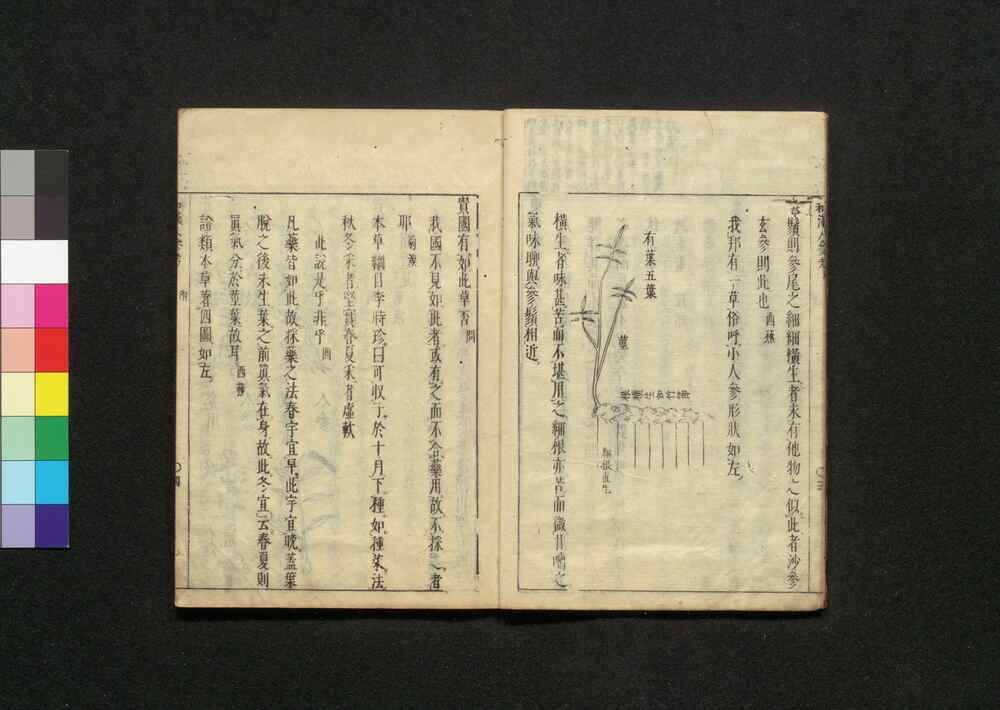 蔘鬚則參尾之細細橫生者未有他物之似此者沙參
玄參則此也 西蓀
我邦有一草俗呼小人參形狀如左
有葉五葉
莖
橫根生如竹節
細根直生
橫生者味甚苦而不堪用之細根亦苦而微甘嚼之
氣味聊與參鬚相近
貴國有如此草否 問
我國不見如此者或有之而不合藥用故不採之者
耶 菊溪
本草綱目李時珍曰可收子於十月下種如種菜法
秋冬采者堅實春夏采者虛軟
此說是乎非乎 問
凡藥皆如此故採藥之法春宜早此字宜晩蓋葉
脫之後未生葉之前眞氣在身故此冬宜云春夏則
眞氣分於莖葉故耳 西蓀
證類本草著四圖如左